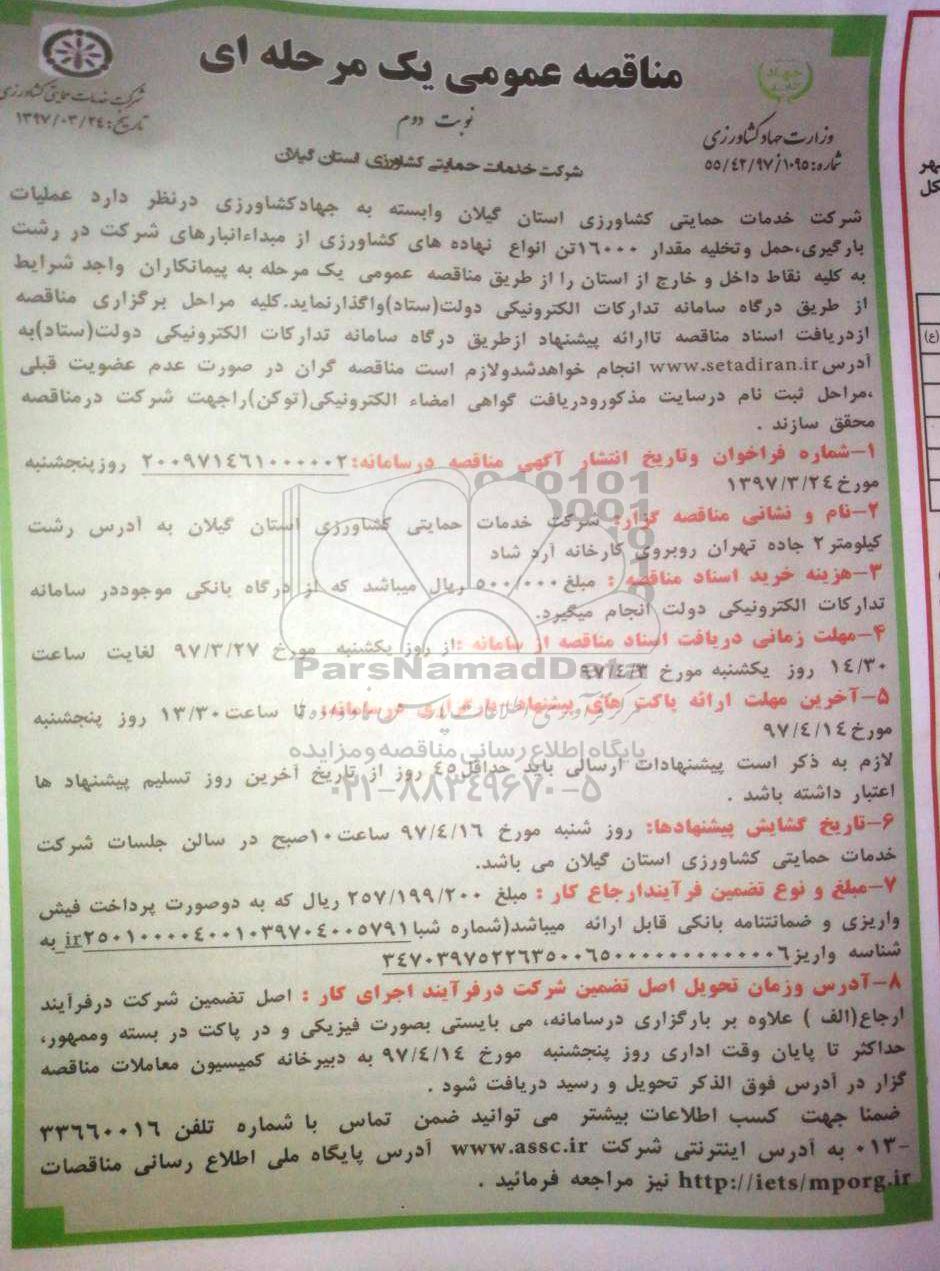 مناقصه عمومی یک مرحله ای
نوبت دوم
جهاد
وزارت جهاد کشاورزی
شماره: ۵۵/۴۲/۹۷/۱۰۹۵
شرکت خدمات حمایتی کشاورزی
تاریخ: ۱۳۹۷/۰۳/۲۴
شرکت خدمات حمایتی کشاورزی استان گیلان
شرکت خدمات حمایتی کشاورزی استان گیلان وابسته به جهادکشاورزی درنظر دارد عملیات
بارگیری،حمل وتخلیه مقدار ۱۶۰۰۰تن انواع نهاده های کشاورزی از مبداءانبارهای شرکت در رشت
به کلیه نقاط داخل و خارج از استان را از طریق مناقصه عمومی یک مرحله به پیمانکاران واجد شرایط
از طریق درگاه سامانه تدارکات الکترونیکی دولت(ستاد)واگذارنماید.کلیه مراحل برگزاری مناقصه
ازدریافت اسناد مناقصه تاارائه پیشنهاد ازطریق درگاه سامانه تدارکات الکترونیکی دولت(ستاد)به
آدرس www.setadiran.ir انجام خواهدشدولازم است مناقصه گران در صورت عدم عضویت قبلی
،مراحل ثبت نام درسایت مذکورودریافت گواهی امضاء الکترونیکی(توکن)راجهت شرکت درمناقصه
محقق سازند .
۱-شماره فراخوان وتاریخ انتشار آگهی مناقصه درسامانه: ۲۰۰۹۷۱۴۶۱۰۰۰۰۰۲ روزپنجشنبه
مورخ ۱۳۹۷/۳/۲۴
۲-نام و نشانی مناقصه گزار: شرکت خدمات حمایتی کشاورزی استان گیلان به آدرس رشت
کیلومتر ۲ جاده تهران روبروی کارخانه آرد شاد
۳-هزینه خرید اسناد مناقصه : مبلغ ۵۰۰/۰۰۰ ریال میباشد که از درگاه بانکی موجوددر سامانه
تدارکات الکترونیکی دولت انجام میگیرد.
۴-مهلت زمانی دریافت اسناد مناقصه از سامانه :از روز یکشنبه مورخ ۹۷/۳/۲۷ لغایت ساعت
۱۴/۳۰ روز یکشنبه مورخ ۹۷/۴/۳
ParsNamadData
۵-آخرین مهلت ارائه پاکت های پیشنهاد بارگزاری درسامانه: تا ساعت ۱۳/۳۰ روز پنجشنبه
مورخ ۹۷/۴/۱۴
پایگاه اطلاع رسانی مناقصه و مزایده
لازم به ذکر است پیشنهادات ارسالی باید حداقل۴۵ روز از تاریخ آخرین روز تسلیم پیشنهاد ها
۰۲۱-۸۸۳۴۹۶۷۰-۵
اعتبار داشته باشد .
۶-تاریخ گشایش پیشنهادها: روز شنبه مورخ ۹۷/۴/۱۶ ساعت۱۰صبح در سالن جلسات شرکت
خدمات حمایتی کشاورزی استان گیلان می باشد.
۷-مبلغ و نوع تضمین فرآیندارجاع کار : مبلغ ۲۵۷/۱۹۹/۲۰۰ ریال که به دوصورت پرداخت فیش
واریزی و ضمانتنامه بانکی قابل ارائه میباشد(شماره شبا ir۲۵۰۱۰۰۰۰۴۰۰۱۰۳۹۷۰۴۰۰۵۷۹۱ به
شناسه واریز ۳۴۷۰۳۹۷۵۲۲۶۳۵۰۰۶۵۰۰۰۰۰۰۰۰۰۰۰۰۶
۸-آدرس وزمان تحویل اصل تضمین شرکت درفرآیند اجرای کار : اصل تضمین شرکت درفرآیند
ارجاع(الف ) علاوه بر بارگزاری درسامانه، می بایستی بصورت فیزیکی و در پاکت در بسته وممهور،
حداکثر تا پایان وقت اداری روز پنجشنبه مورخ ۹۷/۴/۱۴ به دبیرخانه کمیسیون معاملات مناقصه
گزار در آدرس فوق الذکر تحویل و رسید دریافت شود .
ضمنا جهت کسب اطلاعات بیشتر می توانید ضمن تماس با شماره تلفن ۳۳۶۶۰۰۱۶
-۰۱۳ به آدرس اینترنتی شرکت www.assc.ir آدرس پایگاه ملی اطلاع رسانی مناقصات
http://iets/mporg.ir نیز مراجعه فرمائید .